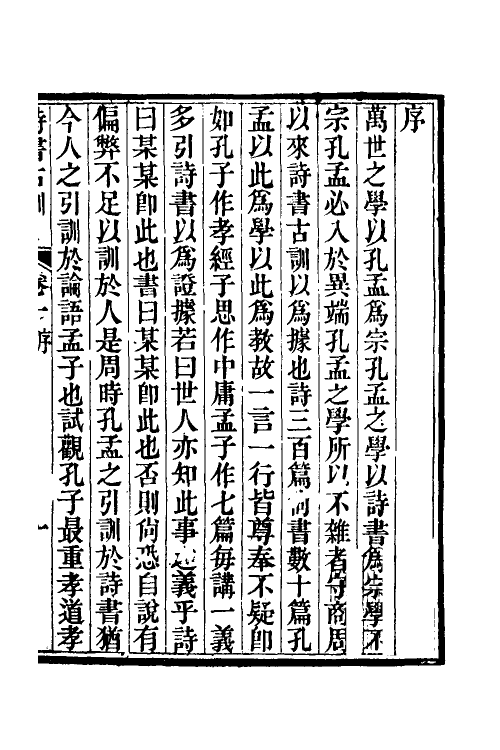 序
萬世之學以孔孟爲宗孔孟之學以詩書爲宗學不
宗孔孟必入於異端孔孟之學所以不雜者守商周
以來詩書古訓以爲據也詩三百篇尚書數十篇孔
孟以此爲學以此爲教故一言一行皆尊奉不疑卽
如孔子作孝經子思作中庸孟子作七篇每講一義
多引詩書以爲證據若曰世人亦知此事之義乎詩
曰某某卽此也書曰某某卽此也否則尙恐自說有
偏弊不足以訓於人是周時孔孟之引訓於詩書猶
今人之引訓於論語孟子也試觀孔子最重孝道孝
詩書古訓 卷一序 一